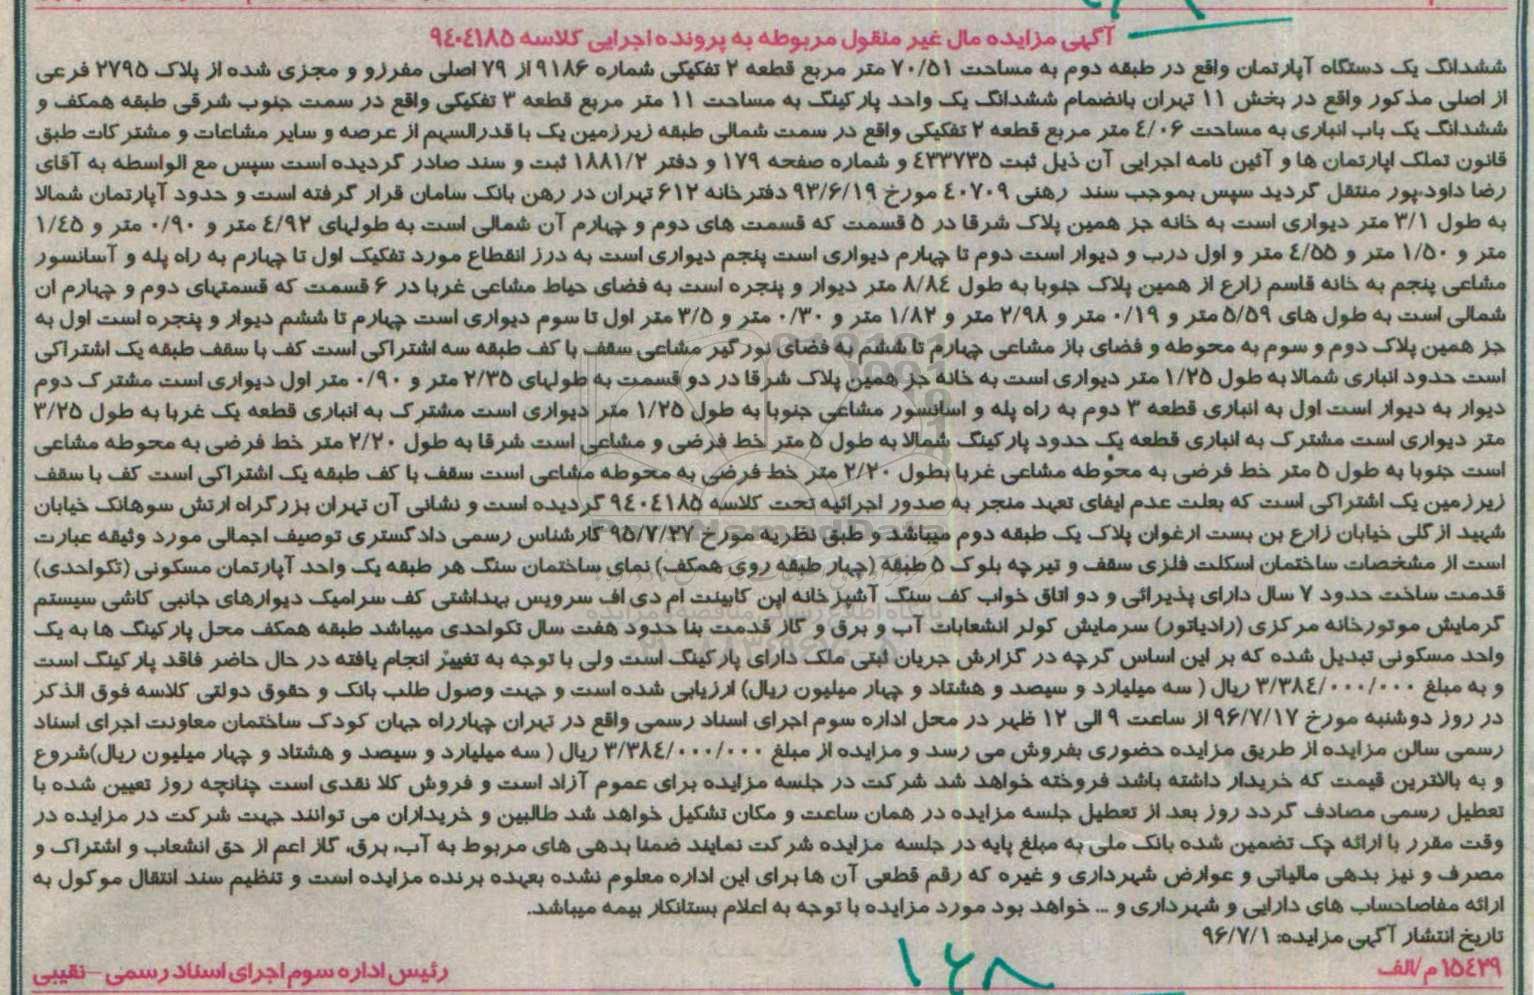 آگهی مزایده مال غیر منقول مربوطه به پرونده اجرایی کلاسه ۹۴۰۴۱۸۵
ششدانگ یک دستگاه آپارتمان واقع در طبقه دوم به مساحت ۷۰/۵۱ متر مربع قطعه ۲ تفکیکی شماره ۹۱۸۶ از ۷۹ اصلی مفرزو و مجزی شده از پلاک ۲۷۹۵ فرعی
از اصلی مذکور واقع در بخش ۱۱ تهران بانضمام ششدانگ یک واحد پارکینگ به مساحت ۱۱ متر مربع قطعه ۳ تفکیکی واقع در سمت جنوب شرقی طبقه همکف و
ششدانگ یک باب انباری به مساحت ۴/۰۶ متر مربع قطعه ۲ تفکیکی واقع در سمت شمالی طبقه زیرزمین یک با قدرالسهم از عرصه و سایر مشاعات و مشترکات طبق
قانون تملک اپارتمان ها و آئین نامه اجرایی آن ذیل ثبت ۴۳۳۷۳۵ و شماره صفحه ۱۷۹ و دفتر ۱۸۸۱/۲ ثبت و سند صادر گردیده است سپس مع الواسطه به آقای
رضا داود،پور منتقل گردید سپس بموجب سند رهنی ۴۰۷۰۹ مورخ ۹۳/۶/۱۹ دفترخانه ۶۱۲ تهران در رهن بانک سامان قرار گرفته است و حدود آپارتمان شمالا
به طول ۳/۱ متر دیواری است به خانه جز همین پلاک شرقا در ۵ قسمت که قسمت های دوم و چهارم آن شمالی است به طولهای ۴/۹۲ متر و ۰/۹۰ متر و ۱/۴۵
متر و ۱/۵۰ متر و ۴/۵۵ متر و اول درب و دیوار است دوم تا چهارم دیواری است پنجم دیواری است به درز انقطاع مورد تفکیک اول تا چهارم به راه پله و آسانسور
مشاعی پنجم به خانه قاسم زارع از همین پلاک جنوبا به طول ۸/۸۴ متر دیوار و پنجره است به فضای حیاط مشاعی غربا در ۶ قسمت که قسمتهای دوم و چهارم ان
شمالی است به طول های ۵/۵۹ متر و ۰/۱۹ متر و ۲/۹۸ متر و ۱/۸۲ متر و ۰/۳۰ متر و ۳/۵ متر اول تا سوم دیواری است چهارم تا ششم دیوار و پنجره است اول به
جز همین پلاک دوم و سوم به محوطه و فضای باز مشاعی چهارم تا ششم به فضای نورگیر مشاعی سقف با کف طبقه سه اشتراکی است کف با سقف طبقه یک اشتراکی
است حدود انباری شمالا به طول ۱/۲۵ متر دیواری است به خانه جز همین پلاک شرقا در دو قسمت به طولهای ۲/۳۵ متر و ۰/۹۰ متر اول دیواری است مشترک دوم
دیوار به دیوار است اول به انباری قطعه ۳ دوم به راه پله و اسانسور مشاعی جنوبا به طول ۱/۲۵ متر دیواری است مشترک به انباری قطعه یک غربا به طول ۳/۲۵
متر دیواری است مشترک به انباری قطعه یک حدود پارکینگ شمالا به طول ۵ متر خط فرضی و مشاعی است شرقا به طول ۲/۲۰ متر خط فرضی به محوطه مشاعی
است جنوبا به طول ۵ متر خط فرضی به محوطه مشاعی غربا بطول ۲/۲۰ متر خط فرضی به محوطه مشاعی است سقف با کف طبقه یک اشتراکی است کف با سقف
زیرزمین یک اشتراکی است که بعلت عدم ایفای تعهد منجر به صدور اجرائیه تحت کلاسه ۹۴۰۴۱۸۵ گردیده است و نشانی آن تهران بزرگراه ارتش سوهانک خیابان
شهید ازگلی خیابان زارع بن بست ارغوان پلاک یک طبقه دوم میباشد و طبق نظریه مورخ ۹۵/۷/۲۷ کارشناس رسمی دادگستری توصیف اجمالی مورد وثیقه عبارت
است از مشخصات ساختمان اسکلت فلزی سقف و تیرچه بلوک ۵ طبقه (چهار طبقه روی همکف) نمای ساختمان سنگ هر طبقه یک واحد آپارتمان مسکونی (تکواحدی)
قدمت ساخت حدود ۷ سال دارای پذیرائی و دو اتاق خواب کف سنگ آشپزخانه اپن کابینت ام دی اف سرویس بهداشتی کف سرامیک دیوارهای جانبی کاشی سیستم
گرمایش موتورخانه مرکزی (رادیاتور) سرمایش کولر انشعابات آب و برق و گاز قدمت بنا حدود هفت سال تکواحدی میباشد طبقه همکف محل پارکینگ ها به یک
واحد مسکونی تبدیل شده که بر این اساس گرچه در گزارش جریان ثبتی ملک دارای پارکینگ است ولی با توجه به تغییر انجام یافته در حال حاضر فاقد پارکینگ است
و به مبلغ ۳/۳۸۴/۰۰۰/۰۰۰ ریال ( سه میلیارد و سیصد و هشتاد و چهار میلیون ریال) ارزیابی شده است و جهت وصول طلب بانک و حقوق دولتی کلاسه فوق الذکر
در روز دوشنبه مورخ ۹۶/۷/۱۷ از ساعت ۹ الی ۱۲ ظهر در محل اداره سوم اجرای اسناد رسمی واقع در تهران چهارراه جهان کودک ساختمان معاونت اجرای اسناد
رسمی سالن مزایده از طریق مزایده حضوری بفروش می رسد و مزایده از مبلغ ۳/۳۸۴/۰۰۰/۰۰۰ ریال ( سه میلیارد و سیصد و هشتاد و چهار میلیون ریال)شروع
و به بالاترین قیمت که خریدار داشته باشد فروخته خواهد شد شرکت در جلسه مزایده برای عموم آزاد است و فروش کلا نقدی است چنانچه روز تعیین شده با
تعطیل رسمی مصادف گردد روز بعد از تعطیل جلسه مزایده در همان ساعت و مکان تشکیل خواهد شد طالبین و خریداران می توانند جهت شرکت در مزایده در
وقت مقرر با ارائه چک تضمین شده بانک ملی به مبلغ پایه در جلسه مزایده شرکت نمایند ضمنا بدهی های مربوط به آب، برق، گاز اعم از حق انشعاب و اشتراک و
مصرف و نیز بدهی مالیاتی و عوارض شهرداری و غیره که رقم قطعی آن ها برای این اداره معلوم نشده بعهده برنده مزایده است و تنظیم سند انتقال موکول به
ارائه مفاصاحساب های دارایی و شهرداری و ... خواهد بود مورد مزایده با توجه به اعلام بستانکار بیمه میباشد.
تاریخ انتشار آگهی مزایده: ۹۶/۷/۱
۱۵۴۳۹ م/الف
رئیس اداره سوم اجرای اسناد رسمی – نقیبی